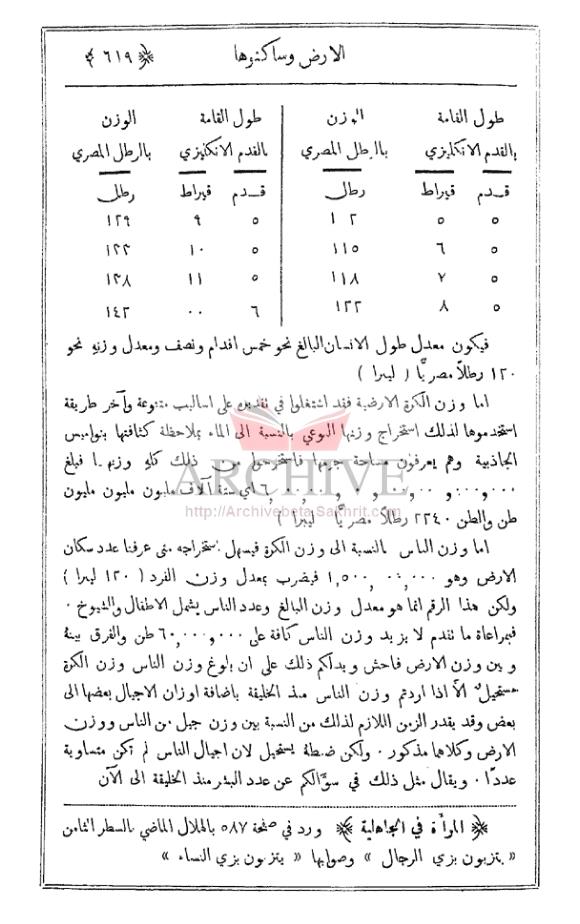 الارض وساكنوها ﴿ ٦١٩ ﴾
طول القامة الوزن طول القامة الوزن
بالقدم الانكليزي بالرطل المصري بالقدم الانكليزي بالرطل المصري
قدم قيراط رطل قدم قيراط رطل
٥ ٥ ٥ ٩ ١٢٩
٥ ٦ ١١٥ ٥ ١٠
٥ ٧ ١١٨ ٥ ١١ ١٣٨
٥ ٨ ١٢٢ ٦ ٠٠ ١٤٢
فيكون معدل طول الانسان البالغ نحو خمس اقدام ونصف ومعدل وزنه نحو
١٢٠ رطلاً مصريًّا ( ليبرا )
اما وزن الكرة الارضية فقد اشتغلوا في تقديره على اساليب متنوعة وآخر طريقة
استخدموها لذلك استخراج وزنها النوعي بالنسبة الى الماء بملاحظة كثافتها بنواميس
الجاذبية وهم يعرفون مساحة جرمها فاستخرجوا من ذلك كله وزنها فبلغ
اي ستة آلاف مليون مليون مليون
طن والطن ٢٢٤٠ رطلاً مصريًّا ( ليبرا )
اما وزن الناس بالنسبة الى وزن الكرة فيسهل استخراجه متى عرفنا عدد سكان
الارض وهو ١,٥٠٠,٠٠٠,٠٠٠ فيضرب بمعدل وزن الفرد ( ١٢٠ ليبرا )
ولكن هذا الرقم انما هو معدل وزن البالغ وعدد الناس يشمل الاطفال والشيوخ .
فبمراعاة ما تقدم لا يزيد وزن الناس كافة على ٦٠,٠٠٠,٠٠٠ طن والفرق بينه
وبين وزن الارض فاحش ويدلكم ذلك على ان بلوغ وزن الناس وزن الكرة
مستحيل الاّ اذا اردتم وزن الناس منذ الخليقة باضافة اوزان الاجيال بعضها الى
بعض وقد يقدر الزمن اللازم لذلك من النسبة بين وزن جيل من الناس ووزن
الارض وكلاهما مذكور . ولكن ضبطه يستحيل لان اجيال الناس لم تكن متساوية
عددًا . ويقال مثل ذلك في سؤَالكم عن عدد البشر منذ الخليقة الى الآن
﴿ المرأَة في الجاهلية ﴾ ورد في صفحة ٥٨٧ بالهلال الماضي بالسطر الثامن
« يتزيون بزي الرجال » وصوابها « يتزيون بزي النساء »
ARCHIVE
http://Archivebeta.Sakhrit.com